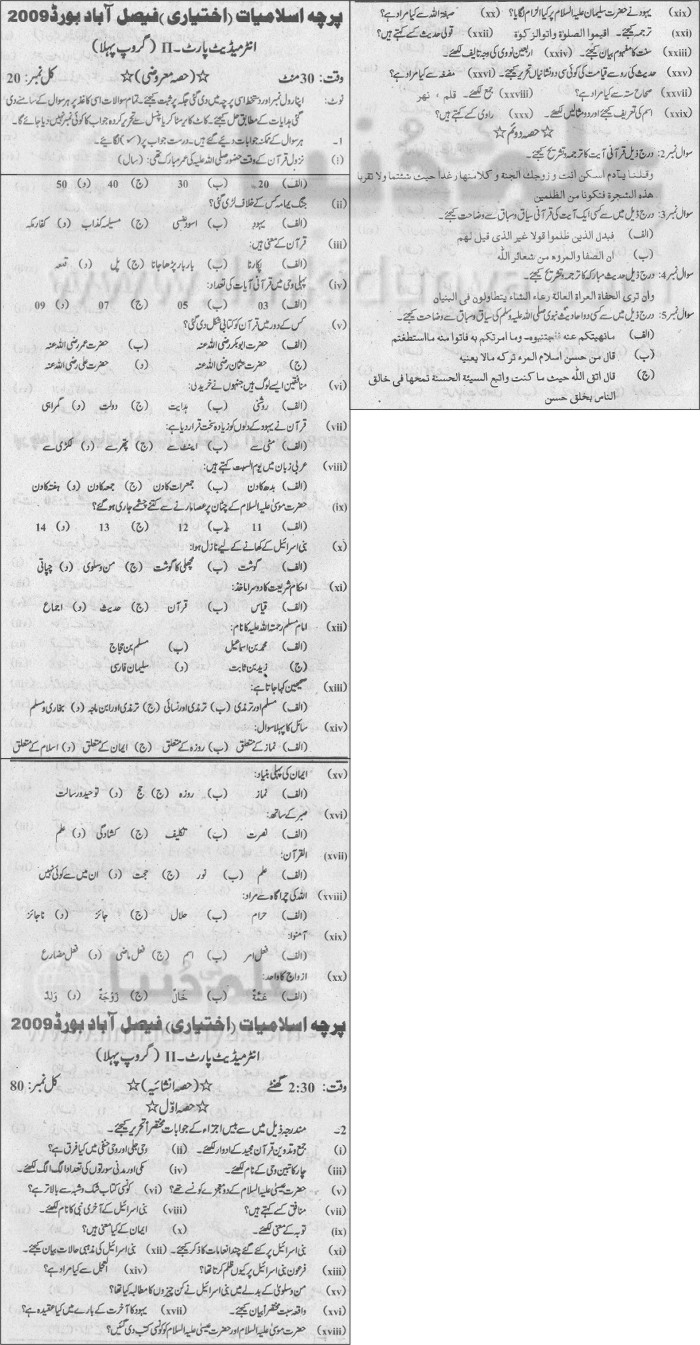 پرچہ اسلامیات (اختیاری) فیصل آباد بورڈ 2009
انٹرمیڈیٹ پارٹ۔ II (گروپ پہلا)
وقت: 30 منٹ ☆(حصہ معروضی)☆ کل نمبر: 20
نوٹ: اپنا رول نمبر اور دستخط اسی پرچہ میں دی گئی جگہ پر ثبت کیجئے۔ تمام سوالات اسی کاغذ پر ہر سوال کے سامنے دی
گئی ہدایات کے مطابق حل کیجئے۔ کاٹ کا یا مٹا کر یا پنسل سے تحریر کردہ جواب کا کوئی نمبر نہیں دیا جائے گا۔
1۔ ہر سوال کے ممکنہ جوابات دیئے گئے ہیں۔ درست جواب پر (✓) لگائیے۔
(i) نزول قرآن کے وقت حضور صلی اللہ علیہ کی عمر مبارک تھی: (سال)
(الف) 20 (ب) 30 (ج) 40 (د) 50
(ii) جنگ یمامہ کس کے خلاف لڑی گئی؟
(الف) یہود (ب) اسود عنسی (ج) مسیلمہ کذاب (د) کفار مکہ
(iii) قرآن کے معنی ہیں:
(الف) پکارنا (ب) بار بار پڑھا جانا (ج) پل (د) قصہ
(iv) پہلی وحی میں قرآنی آیات کی تعداد:
(الف) 03 (ب) 05 (ج) 07 (د) 09
(v) کس کے دور میں قرآن کو کتابی شکل دی گئی؟
(الف) حضرت ابوبکر رضی اللہ عنہ (ب) حضرت عمر رضی اللہ عنہ
(ج) حضرت عثمان رضی اللہ عنہ (د) حضرت علی رضی اللہ عنہ
(vi) منافقین ایسے لوگ ہیں جنہوں نے خرید لی:
(الف) روشنی (ب) ہدایت (ج) دولت (د) گمراہی
(vii) قرآن نے یہود کے دلوں کو زیادہ سخت قرار دیا ہے:
(الف) مٹی سے (ب) اینٹ سے (ج) پتھر سے (د) لکڑی سے
(viii) عربی زبان میں یوم السبت کہتے ہیں:
(الف) بدھ کا دن (ب) جمعرات کا دن (ج) جمعہ کا دن (د) ہفتہ کا دن
(ix) حضرت موسیٰ علیہ السلام کے چٹان پر عصا مارنے سے کتنے چشمے جاری ہو گئے؟
(الف) 11 (ب) 12 (ج) 13 (د) 14
(x) بنی اسرائیل کے کھانے کے لیے نازل ہوا:
(الف) گوشت (ب) مچھلی کا گوشت (ج) من و سلویٰ (د) چپاتی
(xi) احکام شریعت کا دوسرا ماخذ:
(الف) قیاس (ب) قرآن (ج) حدیث (د) اجماع
(xii) امام مسلم رحمۃ اللہ علیہ کا نام:
(الف) محمد بن اسماعیل (ب) مسلم بن حجاج
(ج) زید بن ثابت (د) سلیمان فارسی
(xiii) صحیحین کہا جاتا ہے:
(الف) مسلم اور ترمذی (ب) ترمذی اور نسائی (ج) ترمذی اور ابن ماجہ (د) بخاری و مسلم
(xiv) سائل کا پہلا سوال:
(الف) نماز کے متعلق (ب) روزہ کے متعلق (ج) ایمان کے متعلق (د) اسلام کے متعلق
(xv) ایمان کی پہلی بنیاد:
(الف) نماز (ب) روزہ (ج) حج (د) توحید و رسالت
(xvi) صبر کے ساتھ:
(الف) نصرت (ب) تکلیف (ج) کشادگی (د) علم
(xvii) القرآن:
(الف) علم (ب) نور (ج) حجت (د) ان میں سے کوئی نہیں
(xviii) اللہ کی چراگاہ سے مراد:
(الف) حرام (ب) حلال (ج) جائز (د) ناجائز
(xix) آمنوا:
(الف) فعل امر (ب) اسم (ج) فعل ماضی (د) فعل مضارع
(xx) ازواج کا واحد:
(الف) عَمَّةٌ (ب) خَالٌ (ج) زَوْجَةٌ (د) وَلَدٌ
پرچہ اسلامیات (اختیاری) فیصل آباد بورڈ 2009
انٹرمیڈیٹ پارٹ۔ II (گروپ پہلا)
وقت: 2:30 گھنٹے ☆(حصہ انشائیہ)☆ کل نمبر: 80
☆ حصہ اوّل ☆
2۔ مندرجہ ذیل میں سے بیس اجزاء کے جوابات مختصراً تحریر کیجئے۔
(i) جمع و تدوین قرآن مجید کے ادوار لکھئے۔ (ii) وحی جلی اور وحی خفی میں کیا فرق ہے؟
(iii) چار کاتبین وحی کے نام لکھئے۔ (iv) مکی اور مدنی سورتوں کی تعداد الگ الگ لکھئے۔
(v) حضرت عیسیٰ علیہ السلام کے دو معجزے کونسے تھے؟ (vi) کونسی کتاب شک و شبہ سے بالاتر ہے؟
(vii) منافق کسے کہتے ہیں؟ (viii) بنی اسرائیل کے آخری نبی کا نام لکھئے۔
(ix) توبہ کے معنی لکھئے۔ (x) ایمان کے کیا معنی ہیں؟
(xi) بنی اسرائیل پر کئے گئے چند انعامات کا ذکر کیجئے۔ (xii) بنی اسرائیل کی مذہبی حالات بیان کیجئے۔
(xiii) فرعون بنی اسرائیل پر کیوں ظلم کرتا تھا؟ (xiv) العجل سے کیا مراد ہے؟
(xv) من و سلویٰ کے بدلے میں بنی اسرائیل نے کن چیزوں کا مطالبہ کیا تھا؟
(xvi) واقعہ سبت مختصراً بیان کیجئے۔ (xvii) یہود کا آخرت کے بارے میں کیا عقیدہ ہے؟
(xviii) حضرت موسیٰ علیہ السلام اور حضرت عیسیٰ علیہ السلام کو کونسی کتب دی گئیں؟
(xix) یہود نے حضرت سلیمان علیہ السلام پر کیا الزام لگایا؟ (xx) صبغۃ اللہ سے کیا مراد ہے؟
(xxi) ترجمہ کیجئے۔ اقیموا الصلوٰة واتوالزکوٰة (xxii) قولی حدیث کسے کہتے ہیں؟
(xxiii) سنت کا مفہوم بیان کیجئے۔ (xxiv) اربعین نووی کی وجہ تالیف لکھئے۔
(xxv) حدیث کی رو سے قیامت کی کوئی سی دو نشانیاں تحریر کیجئے۔ (xxvi) مضغہ سے کیا مراد ہے؟
(xxvii) صحاح ستہ سے کیا مراد ہے؟ (xxviii) جمع لکھئے۔ قلم ، نهر
(xxix) اسم کی تعریف کیجئے اور دو مثالیں لکھئے۔ (xxx) راوی کسے کہتے ہیں؟
☆ حصہ دوئم ☆
سوال نمبر 2: درج ذیل قرآنی آیت کا ترجمہ و تشریح کیجئے۔
وقلنا یآدم اسکن انت و زوجك الجنة و کلا منها رغدا حیث شئتما ولا تقربا
هذه الشجرة فتکونا من الظلمین
سوال نمبر 3: درج ذیل میں سے کسی ایک آیت کی قرآنی سیاق و سباق سے وضاحت کیجئے۔
(الف) فبدل الذین ظلموا قولا غیر الذی قیل لهم
(ب) ان الصفا والمروه من شعائر الله
سوال نمبر 4: درج ذیل حدیث مبارکہ کا ترجمہ و تشریح کیجئے۔
وان تری الحفاة العراة العالة رعاء الشاء یتطاولون فی البنیان
سوال نمبر 5: درج ذیل میں سے کسی دو احادیث نبوی صلی اللہ علیہ وسلم کی سیاق و سباق سے وضاحت کیجئے۔
(الف) مانهیتکم عنه فاجتنبوه۔ وما امرتکم به فاتوا منه مااستطعتم
(ب) قال من حسن اسلام المرء ترکه مالا یعنیه
(ج) قال اتق الله حیث ما کنت واتبع السیئة الحسنة تمحها فی خالق
الناس بخلق حسن